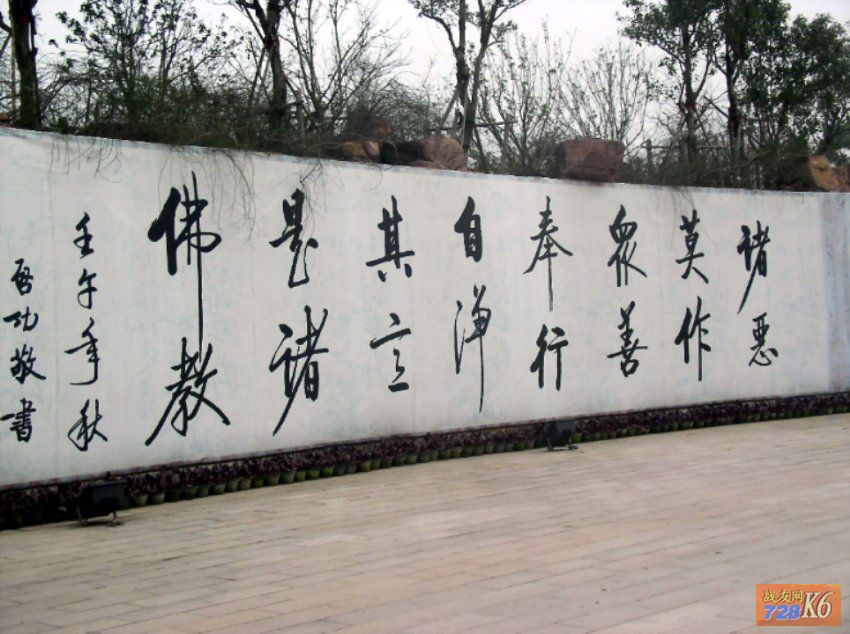 諸惡
莫作
衆善
奉行
自淨
其意
是諸
佛教
壬午年秋
启功敬書
战友网
728K6